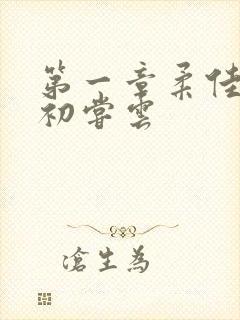 第一章柔佳
初尝雲
滄生為